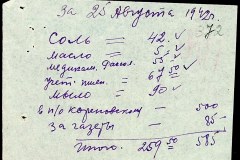 За 25 Августа 1942г.
372
Соль = 42. - v
масло = 5. - v
медикам. = 55. - v
учет. пшен. = 67 50 v
мыло = 90 v
в п/о - 500
за газеты - 85
Итого. 259 50 585